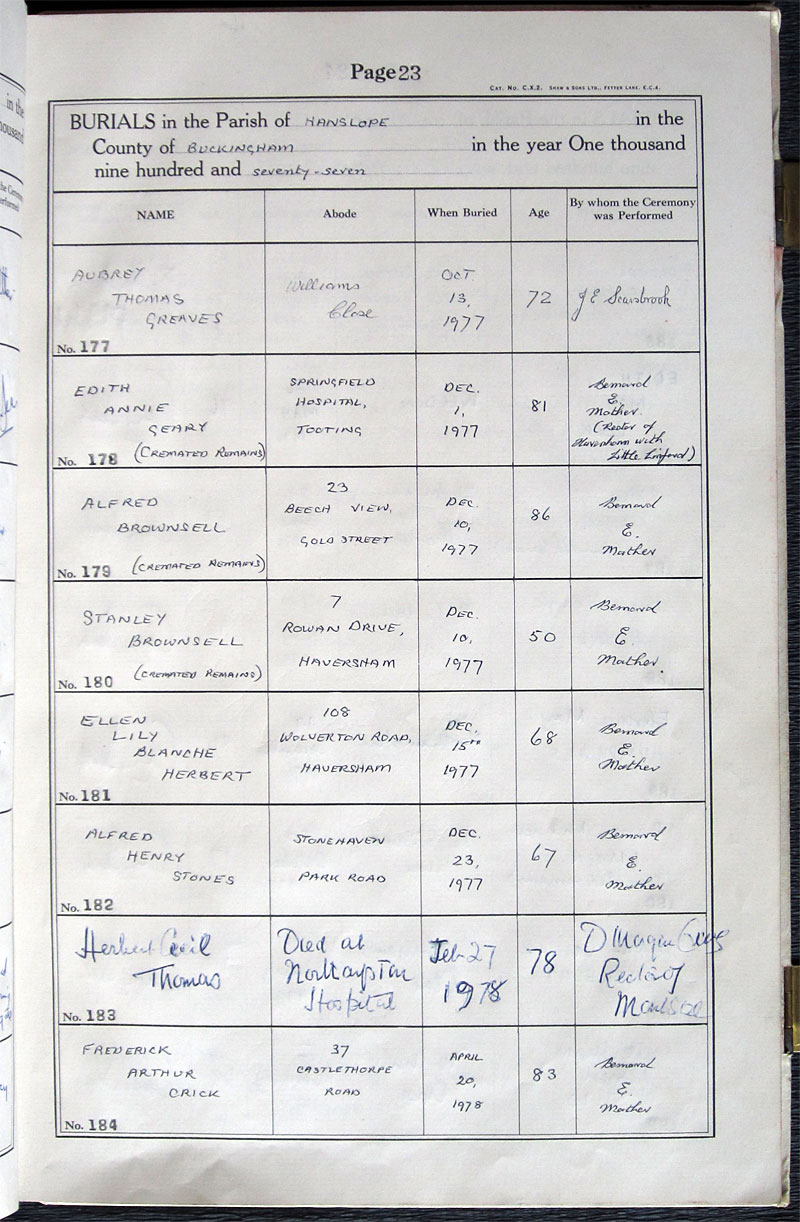 Page 23
CAT. No. C.X.2. SHAW & SONS LTD., FETTER LANE, E.C.4.
BURIALS in the Parish of HANSLOPE in the
County of BUCKINGHAM in the year One thousand
nine hundred and seventy-seven
NAME Abode When Buried Age By whom the Ceremony
was Performed
AUBREY
THOMAS
GREAVES
No. 177
Williams
Close
OCT
13,
1977
72
J E Scarsbrook
EDITH
ANNIE
GEARY
No. 178 (CREMATED REMAINS)
SPRINGFIELD
HOSPITAL,
TOOTING
DEC.
1,
1977
81
Bernard
E.
Mather.
(Rector of
Haversham with
Little Linford)
ALFRED
BROWNSELL
No. 179 (CREMATED REMAINS)
23
BEECH VIEW,
GOLD STREET
DEC.
10,
1977
86
Bernard
E.
Mather
STANLEY
BROWNSELL
No. 180 (CREMATED REMAINS)
7
ROWAN DRIVE,
HAVERSHAM
DEC.
10,
1977
50
Bernard
E.
Mather.
ELLEN
LILY
BLANCHE
HERBERT
No. 181
108
WOLVERTON ROAD,
HAVERSHAM
DEC.
15TH
1977
68
Bernard
E.
Mather
ALFRED
HENRY
STONES
No. 182
STONEHAVEN
PARK ROAD
DEC.
23,
1977
67
Bernard
E.
Mather
Herbert Cecil
Thomas
No. 183
Died at
Northampton
Hospital
Feb 27
1978
78
D
Rector of
Moulsoe
FREDERICK
ARTHUR
CRICK
No. 184
37
CASTLETHORPE
ROAD
APRIL
20,
1978
83
Bernard
E.
Mather